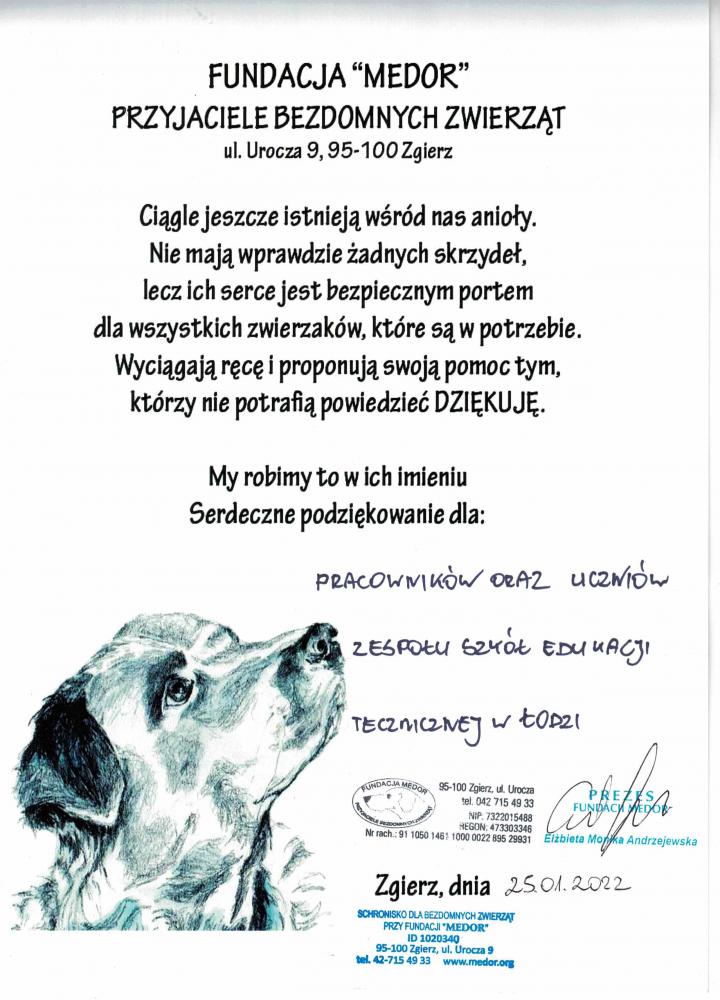 FUNDACJA “MEDOR”
PRZYJACIELE BEZDOMNYCH ZWIERZĄT
ul. Urocza 9, 95-100 Zgierz
Ciągle jeszcze istnieją wśród nas anioły.
Nie mają wprawdzie żadnych skrzydeł,
lecz ich serce jest bezpiecznym portem
dla wszystkich zwierzaków, które są w potrzebie.
Wyciągają ręcę i proponują swoją pomoc tym,
którzy nie potrafią powiedzieć DZIĘKUJĘ.
My robimy to w ich imieniu
Serdeczne podziękowanie dla:
PRACOWNIKÓW ORAZ UCZNIÓW
ZESPOŁU SZKÓŁ EDUKACJI
TECZNICZNEJ W ŁODZI
FUNDACJA MEDOR
PRZYJACIELE BEZDOMNYCH ZWIERZĄT
95-100 Zgierz, ul. Urocza
tel. 042 715 49 33
NIP: 7322015488
REGON: 473303346
Nr rach.: 91 1050 1461 1000 0022 895 29931
PREZES
FUNDACJI MEDOR
Elżbieta Monika Andrzejewska
Zgierz, dnia 25.01.2022
SCHRONISKO DLA BEZDOMNYCH ZWIERZĄT
PRZY FUNDACJI "MEDOR"
ID 1020340
95-100 Zgierz, ul. Urocza 9
tel. 42-715 49 33 www.medor.org